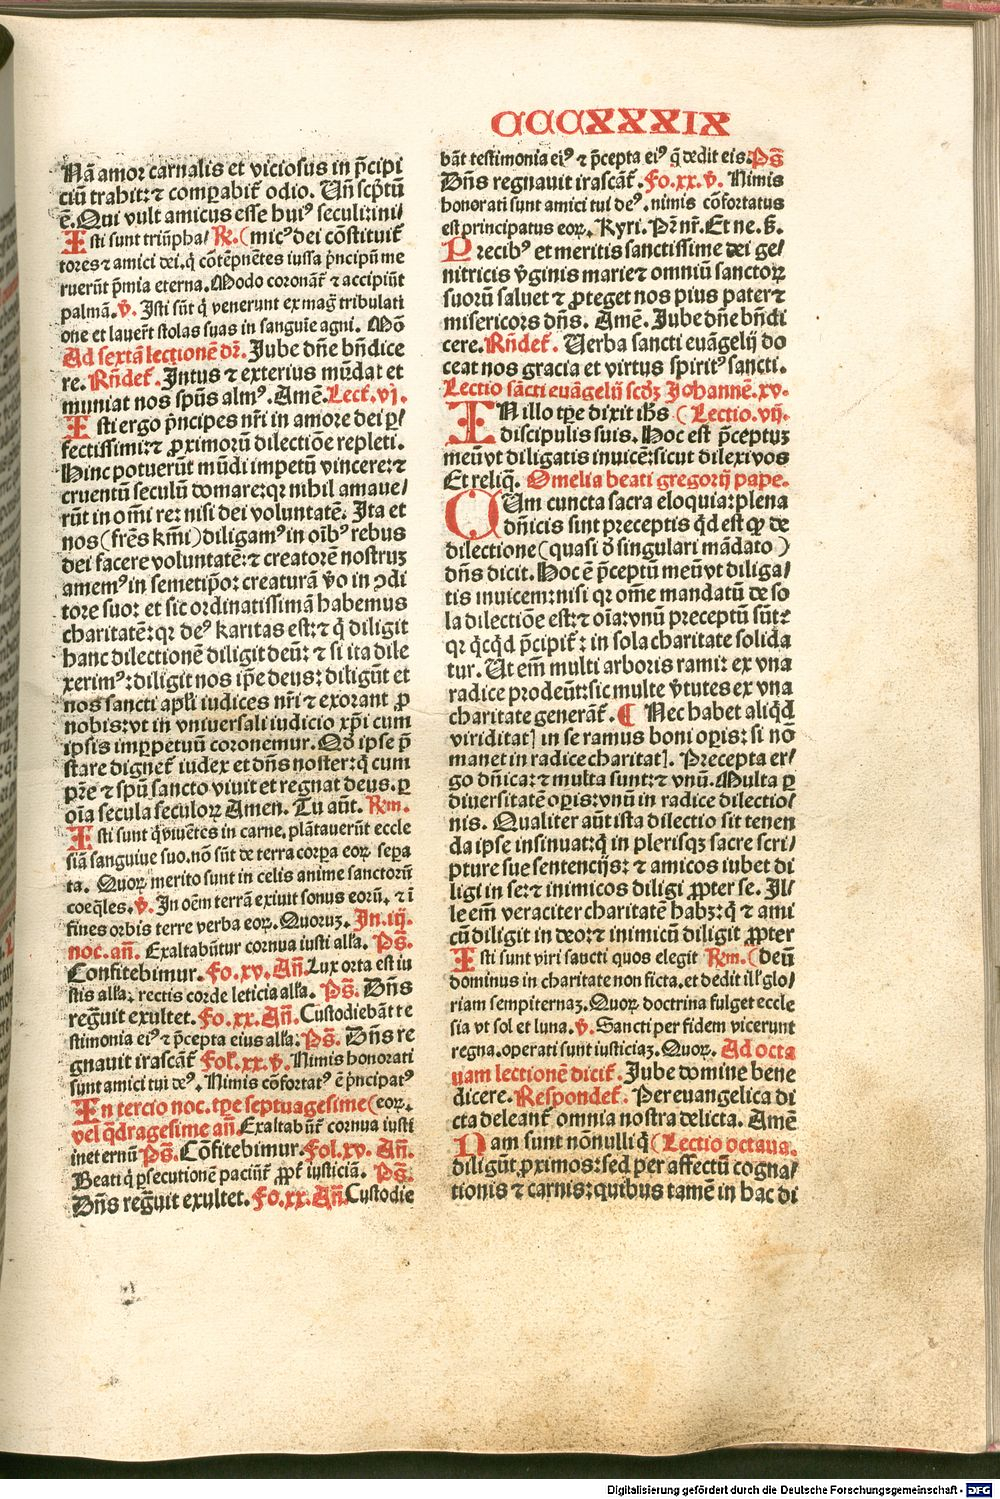 CCCXXXIX
Nã amor carnalis et viciosus in p̃cipi
ciũ trahit: ⁊ comparabit᷑ odio. Vñ scp̃tũ
ẽ. Qui vult amicus esse huiꝰ seculi: ini/
Isti sunt triũpha/ R̃. (micꝰ dei cõstituit᷑
tores ⁊ amici dei. q̃ cõtẽpnẽtes iussa p̃ncipũ me
ruerũt p̃mia eterna. Modo coronãt᷑ ⁊ accipiũt
palmã. v̾. Isti sũt q̃ venerunt ex mag̃ tribulati
one et laver̃t stolas suas in sanguĩe agni. Mõ
Ad sextã lectionẽ dr̃. Jube dñe bñdice
re. Rñdet᷑. Intus ⁊ exterius mũdat et
muniat nos sp̃us almꝰ. Amẽ. Lect᷑. vj.
Isti ergo p̃ncipes nr̃i in amore dei ꝑ/
fectissimi: ⁊ ꝓximorũ dilectiõe repleti.
Hinc potuerũt mũdi impetũ vincere: ⁊
cruentũ seculũ domare: qꝛ nihil amaue/
rũt in om̃i re: nisi dei voluntatẽ. Ita et
nos (fr̃es km̃i) diligamꝰ in oĩbꝰ rebus
dei facere voluntatẽ: ⁊ creatorẽ nostruꝫ
amemꝰ in semetip̃o: creaturã v̾o in ꝯdi
tore suo: et sic ordinatissimã habemus
charitatẽ: qꝛ deꝰ karitas est: ⁊ q̃ diligit
hanc dilectionẽ diligit deũ: ⁊ si ita dile
xerimꝰ: diligit nos ip̃e deus: diligũt et
nos sancti apl̃i iudices nr̃i ⁊ exorant ꝓ
nobis: vt in vniuersali iudicio xp̃i cum
ipsis imꝑpetuũ coronemur. Qđ ipse p̃
stare dignet᷑ iudex et dñs noster: q̃ cum
pr̃e ⁊ sp̃u sancto viuit et regnat deus. ꝑ
oĩa secula seculoꝝ Amen. Tu aũt. R̃m.
Isti sunt q̃ viuẽtes in carne. plãtauerũt eccle
siã sanguine suo. nõ sũt de terra corpa eoꝝ sepa
ta. Quoꝝ merito sunt in celis anime sanctorũ
coeq̃les. v̾. In oẽm terrã exiuit sonus eorũ. ⁊ ĩ
fines orbis terre verba eoꝝ. Quoruꝫ. In. iij.
noc. añ. Exaltabũtur cornua iusti all̃a. Ps̃.
Confitebimur. Fo. xv. Añ. Lux orta est iu
stis all̃a. rectis corde leticia all̃a. Ps̃. Dñs
reg̃uit exultet. Fo. xx. Añ. Custodiebãt te
stimonia eiꝰ ⁊ p̃cepta eius all̃a. Ps̃. Dñs re
gnauit irascãt᷑ Fol. xx. v̾. Nimis honorati
sunt amici tui deꝰ. Nimis cõfortatꝰ ẽ p̃ncipatꝰ
In tercio noc. tp̃e septuagesime (eoꝝ.
vel q̃dragesime añ. Exaltabũt᷑ cornua iusti
in eternũ Ps̃. Cõfitebimur. Fol. xv. Añ.
Beati q̃ ꝑsecutionẽ paciũt᷑ ꝓpt᷑ iusticiã. Ps̃.
Dñs reg̃uit exultet. Fo. xx. Añ. Custodie
bãt testimonia eiꝰ ⁊ p̃cepta eiꝰ q̃ dedit eis. Ps̃
Dñs regnauit irascãt᷑. Fo. xx. v̾. Nimis
honorati sunt amici tui deꝰ. nimis cõfortatus
est principatus eoꝝ. Kyri. Pr̃ nr̃. Et ne. s̃.
Precibꝰ et meritis sanctissime dei ge/
nitricis v̾ginis marie ⁊ omniũ sanctoꝝ
suorũ saluet ⁊ ꝓteget nos pius pater ⁊
misericors dñs. Amẽ. Jube dñe bñdi
cere. Rñdet᷑. Verba sancti euãgelij do
ceat nos gracia et virtus spiritꝰ sancti.
Lectio sãcti euãgelij scđꝫ Johannẽ. xv.
IN illo tp̃e dixit ihs̃ (Lectio. vij.
discipulis suis. Hoc est p̃ceptuꝫ
meũ vt diligatis inuicẽ: sicut dilexi vos
Et reliq̃. Omelia beati gregorij pape.
CUm cuncta sacra eloquia: plena
dñicis sint preceptis q̃d est ꝙ de
dilectione (quasi đ singulari mãdato)
dñs dicit. Hoc ẽ p̃ceptũ meũ vt diliga/
tis inuicem: nisi qꝛ om̃e mandatũ de so
la dilectiõe est: ⁊ oĩa: vnũ preceptũ sũt: ⁊
qꝛ q̃cq̃d p̃cipit᷑: in sola charitate solida
tur. Ut em̃ multi arboris rami: ex vna
radice prodeũt: sic multe v̾tutes ex vna
charitate generãt᷑. ¶ Nec habet aliq̃d
viriditatꝭ in se ramus boni oꝑis: si nõ
manet in radice charitatꝭ. Precepta er/
go dñica: ⁊ multa sunt: ⁊ vnũ. Multa ꝑ
diuersitatẽ oꝑis: vnũ in radice dilectio/
nis. Qualiter aũt ista dilectio sit tenen
da ipse insinuat: q̃ in plerisqꝫ sacre scri/
pture sue sentencijs: ⁊ amicos iubet di
ligi in se: ⁊ inimicos diligi ꝓpter se. Il/
le em̃ veraciter charitatẽ habꝫ: q̃ ⁊ ami
cũ diligit in deo: ⁊ inimicũ diligit ꝓpter
Isti sunt viri sancti quos elegit R̃m. (deũ
dominus in charitate non ficta. et dedit ill̃ glo/
riam sempiternaꝫ. Quoꝝ doctrina fulget eccle
sia vt sol et luna. v̾. Sancti per fidem vicerunt
regna. operati sunt iusticiaꝫ. Quoꝝ. Ad octa
uam lectionẽ dicit᷑. Jube domine bene
dicere. Respondet᷑. Per euangelica di
cta deleant᷑ omnia nostra delicta. Amẽ
Nam sunt nõnulli q̃ (Lectio octaua.
diligũt ꝓximos: sed per affectũ cogna/
tionis ⁊ carnis: quibus tamẽ in hac di
Digitalisierung gefördert durch die Deutsche Forschungsgemeinschaft - DFG